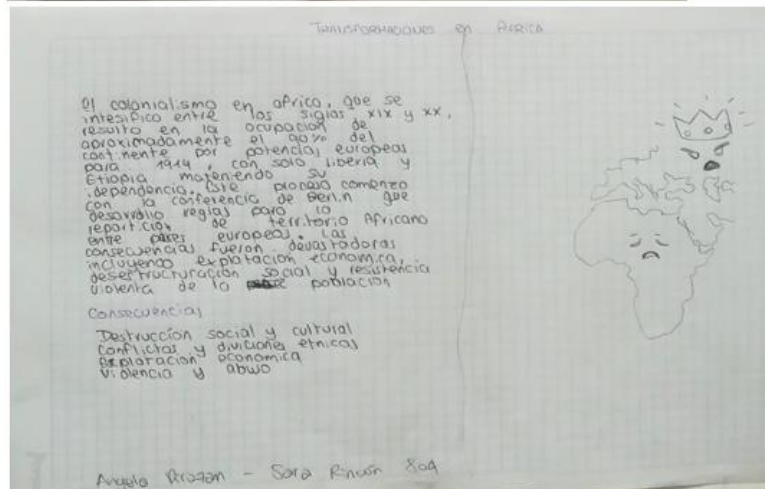 TRANSFORMACIONES en AFRICA
el colonialismo en africa, que se
intesifico entre los siglos xix y xx,
resulto en la ocupacion de
aproximadamente el 90% del
continente por potencias europeas
para 1914, con solo liberia y
Etiopia mateniendo su
idependencia. Este proceso comenzo
con la conferencia de Berlin que
desarrollo reglas para la
reparticion de territorio Africano
entre paises europeos. Las
consecuencias fueron devastadoras
incluyendo explotación economica,
desestructuración social y resistencia
violenta de la población
Consecuencias
Destrucción social y cultural
Conflictos y diviciones etnicas
Exploración economica
violencia y abuso
Sara Rincón 804